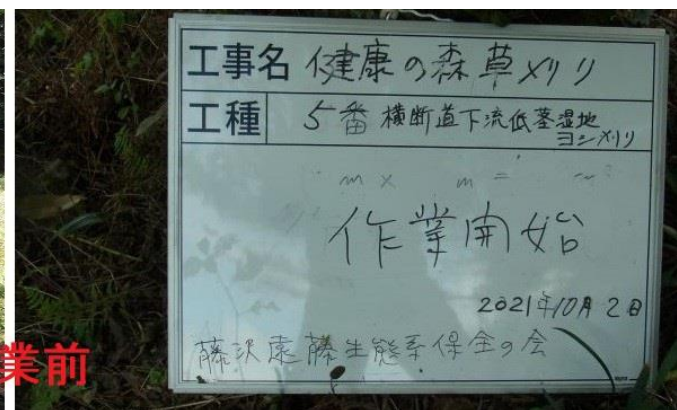 工事名 健康の森草刈り
工種 5番 横断道下流低茎湿地
ヨシ刈り
m x m =
作業開始
2021年10月2日
藤沢遠藤生態系保全の会
業前